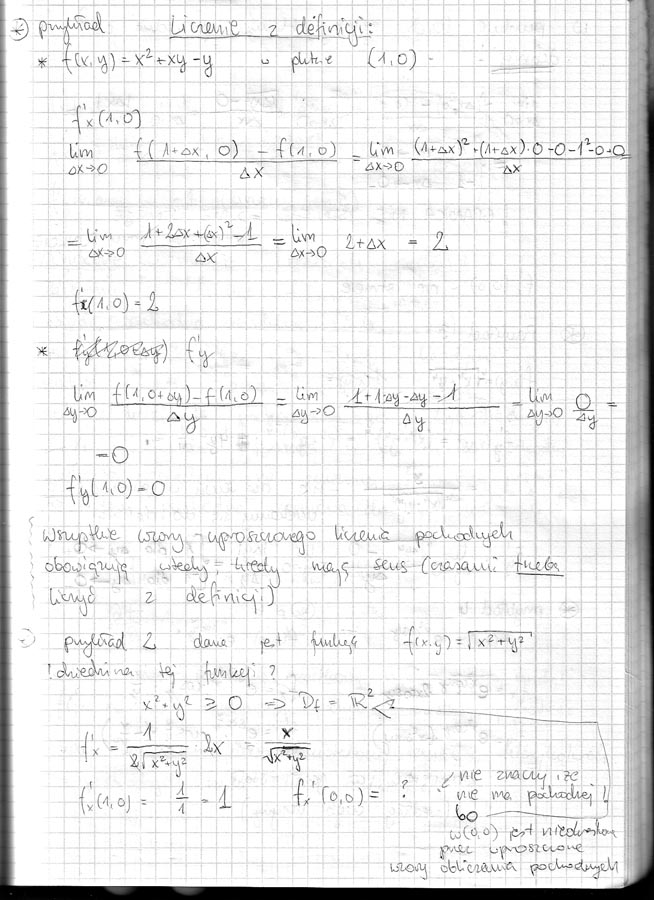 przykład Liczenie z definicji:
* f(x,y) = x² + xy - y w pkcie (1,0)
f'x(1,0)
lim Δx→0 (f(1+Δx, 0) - f(1,0))/Δx = lim Δx→0 ((1+Δx)² + (1+Δx)·0 - 0 - 1² - 0 + 0)/Δx
= lim Δx→0 (1 + 2Δx + (Δx)² - 1)/Δx = lim Δx→0 2 + Δx = 2
f'x(1,0) = 2
* f'y
lim Δy→0 (f(1, 0+Δy) - f(1,0))/Δy = lim Δy→0 (1 + 1·Δy - Δy - 1)/Δy = lim Δy→0 0/Δy =
= 0
f'y(1,0) = 0
Wszystkie wzory uproszczonego liczenia pochodnych
obowiązują wtedy, kiedy mają sens (czasami trzeba
liczyć z definicji)
przykład 2 dana jest funkcja f(x,y) = √(x² + y²)
! dziedzina tej funkcji?
x² + y² ≥ 0 => Df = R²
f'x = 1/(2√(x²+y²)) 2x = x/√(x²+y²)
f'x(1,0) = 1/1 = 1 f'x(0,0) = ?
nie znaczy że
nie ma pochodnej!
bo
w (0,0) jest
przez uproszczone
wzory obliczania pochodnych